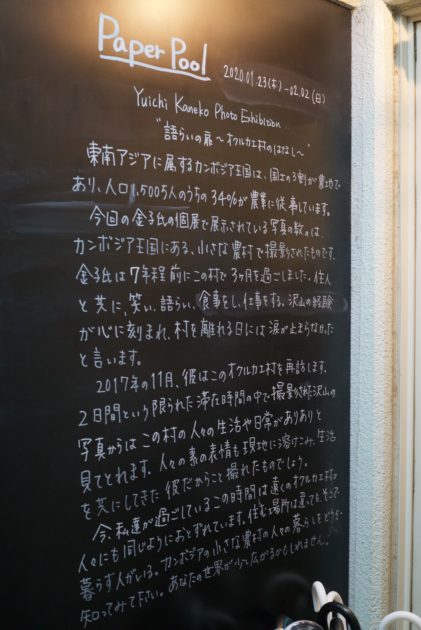 Paper Pool
2020.01.23(木)-02.02(日)
Yuichi Kaneko Photo Exhibition
"語らいの扉〜オクルカエ村のはなし〜"
東南アジアに属するカンボジア王国は、国土の3割が農地で
あり、人口1,500万人のうちの34%が農業に従事しています。
今回の金子氏の個展で展示されている写真の数々は
カンボジア王国にある、小さな農村で撮影されたものです。
金子氏は7年程前にこの村で3ヶ月を過ごしました。住人
と共に、笑い、語らい、食事をし、仕事をする。沢山の経験
が心に刻まれ、村を離れる日には涙が止まらなかった
と言います。
2017年の11月、彼はこのオクルカエ村を再訪します。
2日間という限られた滞在時間の中で撮影された沢山の
写真からはこの村の人々の生活や日常がありありと
見てとれます。人々の素の表情も現地に溶けこみ、生活
を共にしてきた彼だからこそ撮れたものでしょう。
今、私達が過ごしているこの時間は遠くのオクルカエ村の
人々にも同じようにおとずれています。住む場所は違っても、そこで
暮らす人がいる。カンボジアの小さな農村の人々の暮らしをどうぞ
知ってみて下さい。あなたの世界が少し広がるかもしれません。